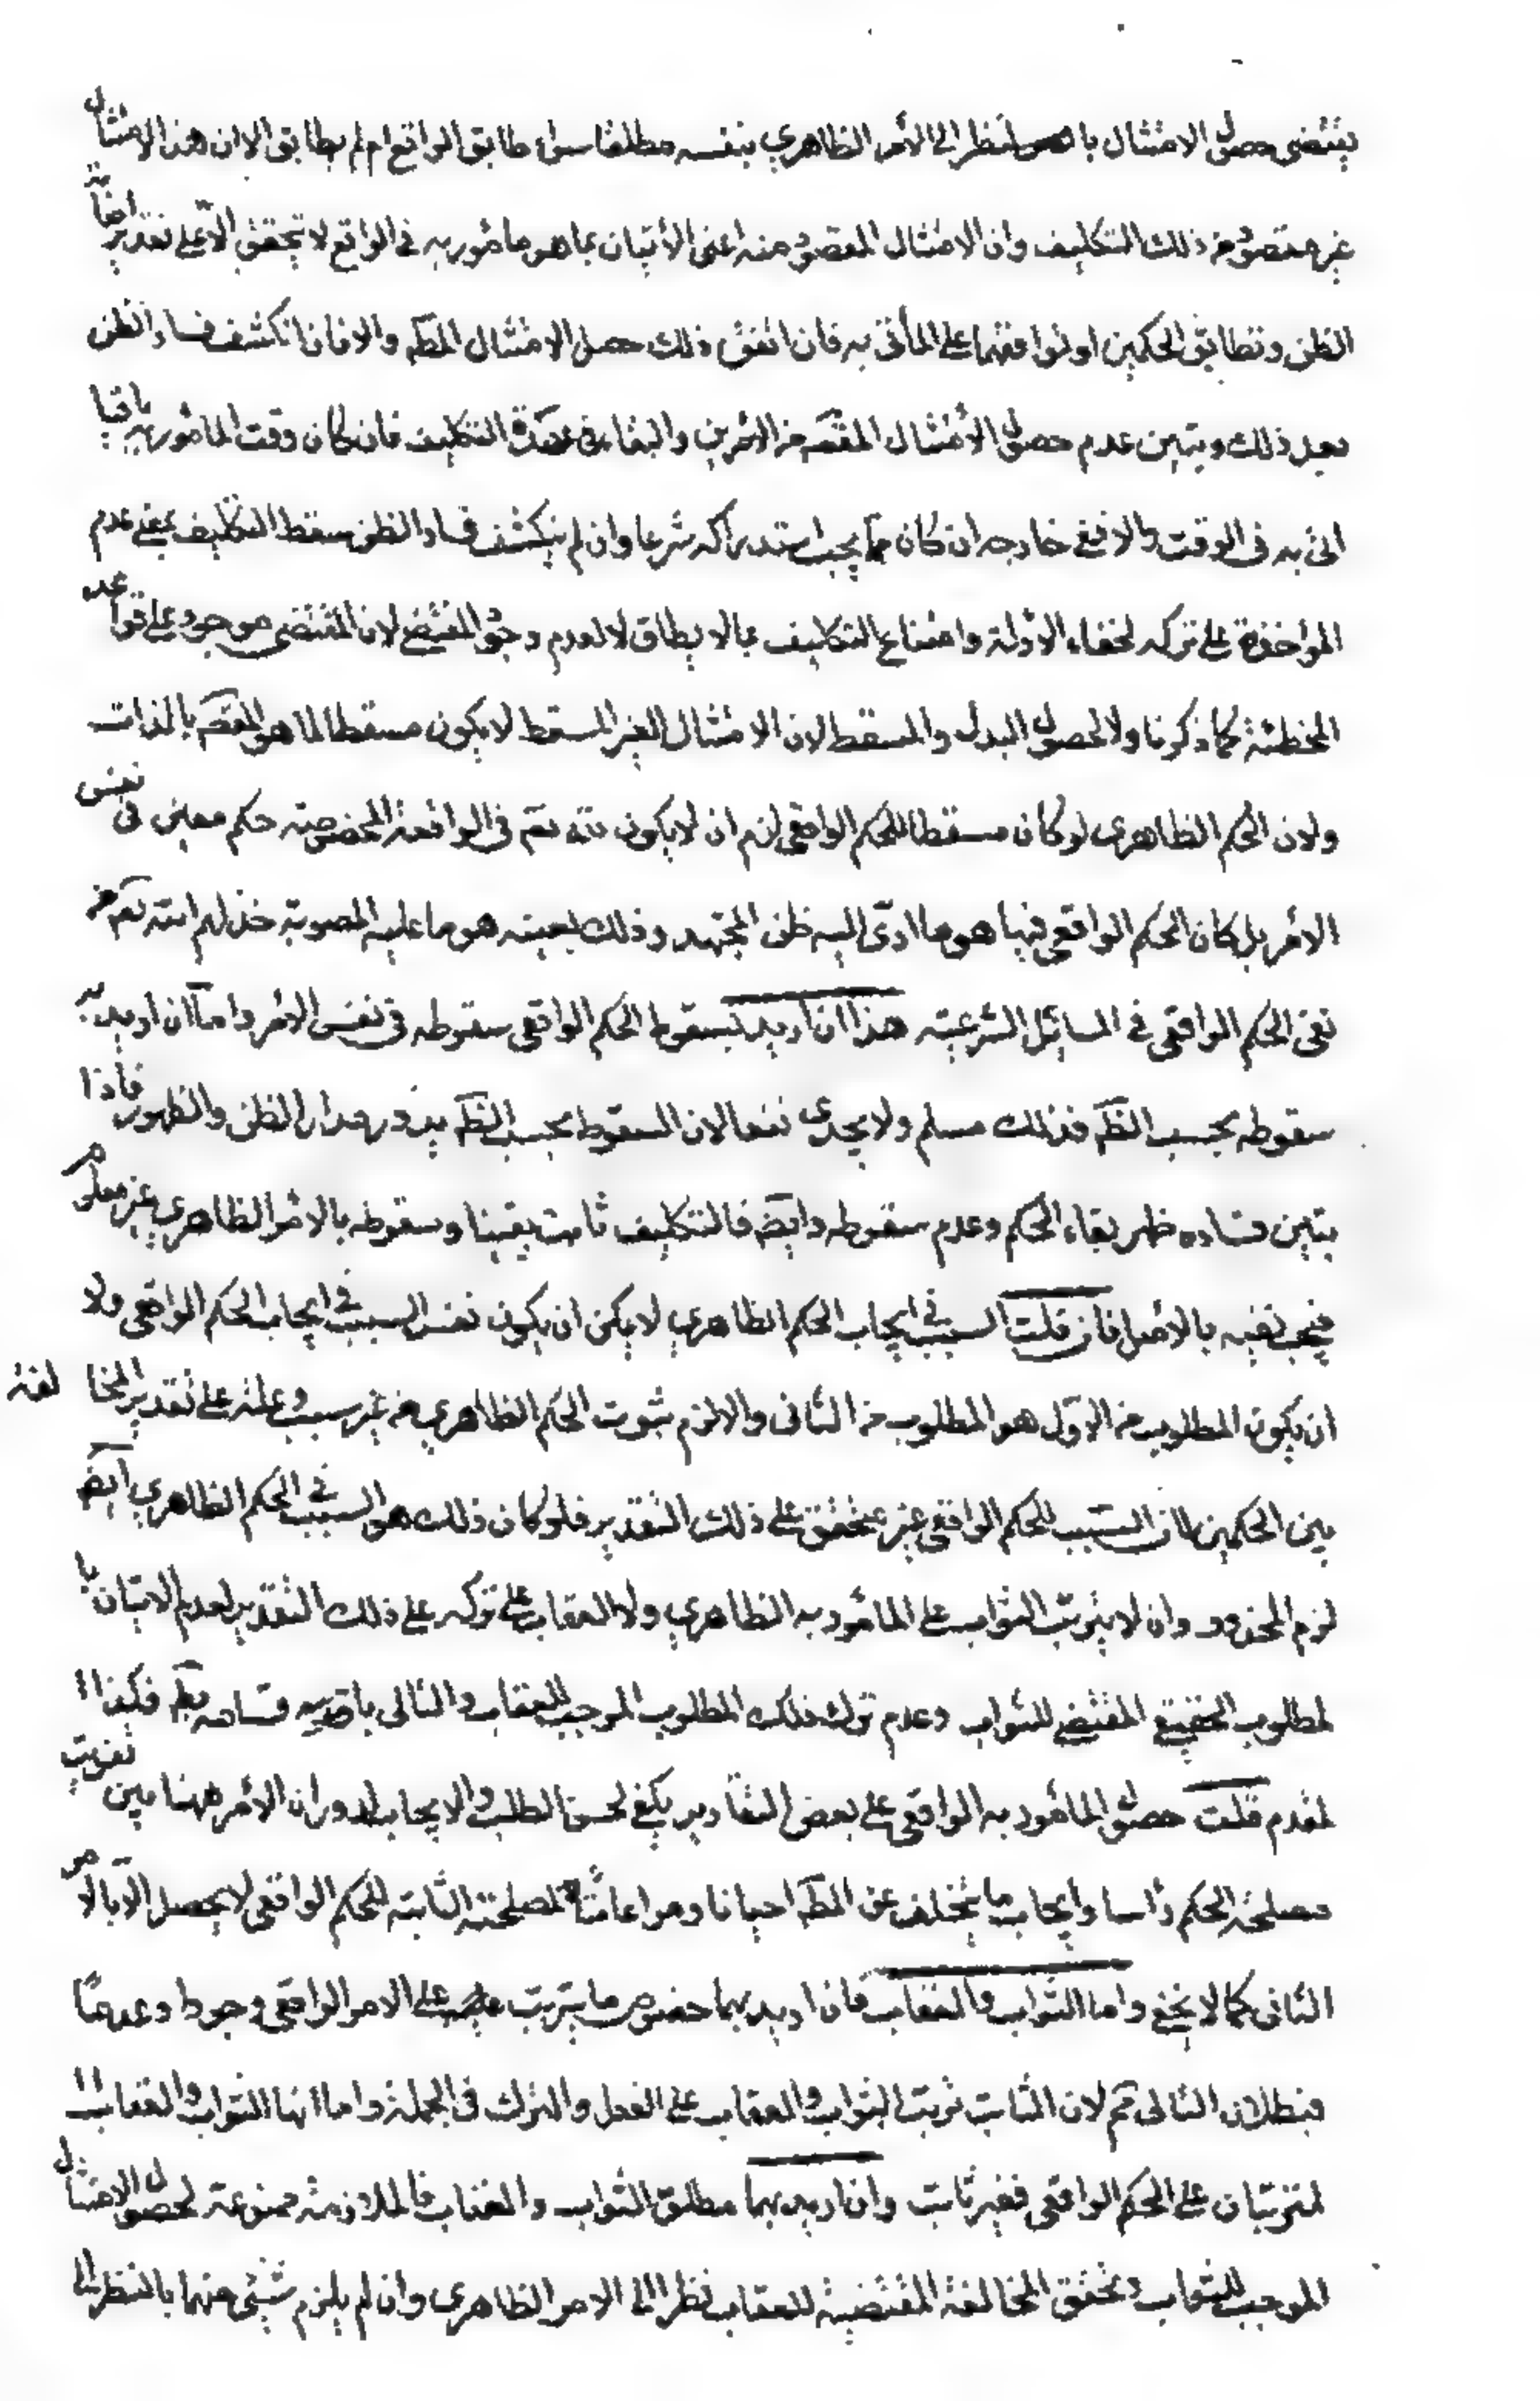 يقتضى حصول الامتثال بالنظر الى الأمر الظاهري بنفسه مطلقا سواء طابق الواقع ام لم يطابق الا ان هذا الامتثال
غير مقصود من ذلك التكليف وان الامتثال المقصود منه اعنى الأتيان بما هو مامور به في الواقع لا يتحقق الّا على تقدير اصابة
الظن وتطابق الحكمين او توافقهما على المأتى به فان اتفق ذلك حصل الامتثال المطم والا فان انكشف فساد الظن
بعد ذلك وتبين عدم حصول الأمتثال المقصم من الامرين والبقاء في عهدة التكليف فان كان وقت المامور به باقيا
اتى به فى الوقت والا ففى خارجه ان كان ممّا يجب استدراكه شرعا وان لم ينكشف فساد الظن سقط التكليف بمعنى عدم
المواخذة على تركه لخفاء الادلة وامتناع التكليف بما لا يطاق لا لعدم وجود المقتضى لان المقتضى موجود على قواعد
المخطئة كما ذكرنا ولا لحصول البدل والمسقط لان الامتثال الغير المسقط لا يكون مسقطا لما هو المقصم بالذات
ولان الحكم الظاهرى لو كان مسقطا للحكم الواقعى لزم ان لا يكون لله تعم فى الواقعة المخصوصة حكم معين فى نفس
الأمر بل كان الحكم الواقعى فيها هو ما ادّى اليه ظن المجتهد وذلك بعينه هو ما عليه المصوبة خذلهم الله تعم من
نفى الحكم الواقعى في المسائل الشرعية هذا ان اريد بسقوط الحكم الواقعى سقوطه فى نفس الامر واما ان اريد به
سقوطه بحسب الظم فذلك مسلم ولا يجدى نفعا لان السقوط بحسب الظم يدور مدار الظن والظهور فاذا
تبين فساده ظهر بقاء الحكم وعدم سقوطه وايضم فالتكليف ثابت يقينا وسقوطه بالامر الظاهري غير معلوم
فيجب نفيه بالاصل فان قلت السبب في ايجاب الحكم الظاهري لا يمكن ان يكون نفس السبب في ايجاب الحكم الواقعى ولا
ان يكون المطلوب من الاوّل هو المطلوب من الثانى والا لزم ثبوت الحكم الظاهري من غير سبب وعلة على تقدير المخالفة
بين الحكمين لان السبب للحكم الواقعى غير متحقق على ذلك التقدير فلو كان ذلك هو السبب في الحكم الظاهري ايضم
لزم المحذور وان لا يترتب الثواب على المامور به الظاهري ولا العقاب على تركه على ذلك التقدير لعدم الاتيان با
لمطلوب الحقيقى المقتضى للثواب وعدم ترك ذلك المطلوب الموجب للعقاب والتالى باقسامه بطم فكذا ا
لمقدم قلت حصول المامور به الواقعى على بعض التقادير يكفى لحسن الطلب والايجاب لدوران الأمر ههنا بين تفويت
مصلحة الحكم رأسا وايجاب ما يتخلف عن المطم احيانا ومراعاة المصلحة الثابتة للحكم الواقعى لا يحصل الّا بالامر
الثانى كما لا يخفى واما الثواب والعقاب فان اريد بهما خصوص ما يترتب على الامر الواقعى وجودا وعدمًا
فبطلان التالى مم لان الثابت ترتب الثواب والعقاب على الفعل والترك فى الجملة واما انها الثواب والعقاب ا
لمترتبان على الحكم الواقعى فغير ثابت وان اريد بهما مطلق الثواب والعقاب فالملازمة ممنوعة لحصول الامتثال
الموجب للثواب وتحقق المخالفة المقتضية للعقاب نظرا الى الامر الظاهرى وان لم يلزم شئ منهما بالنظر الى